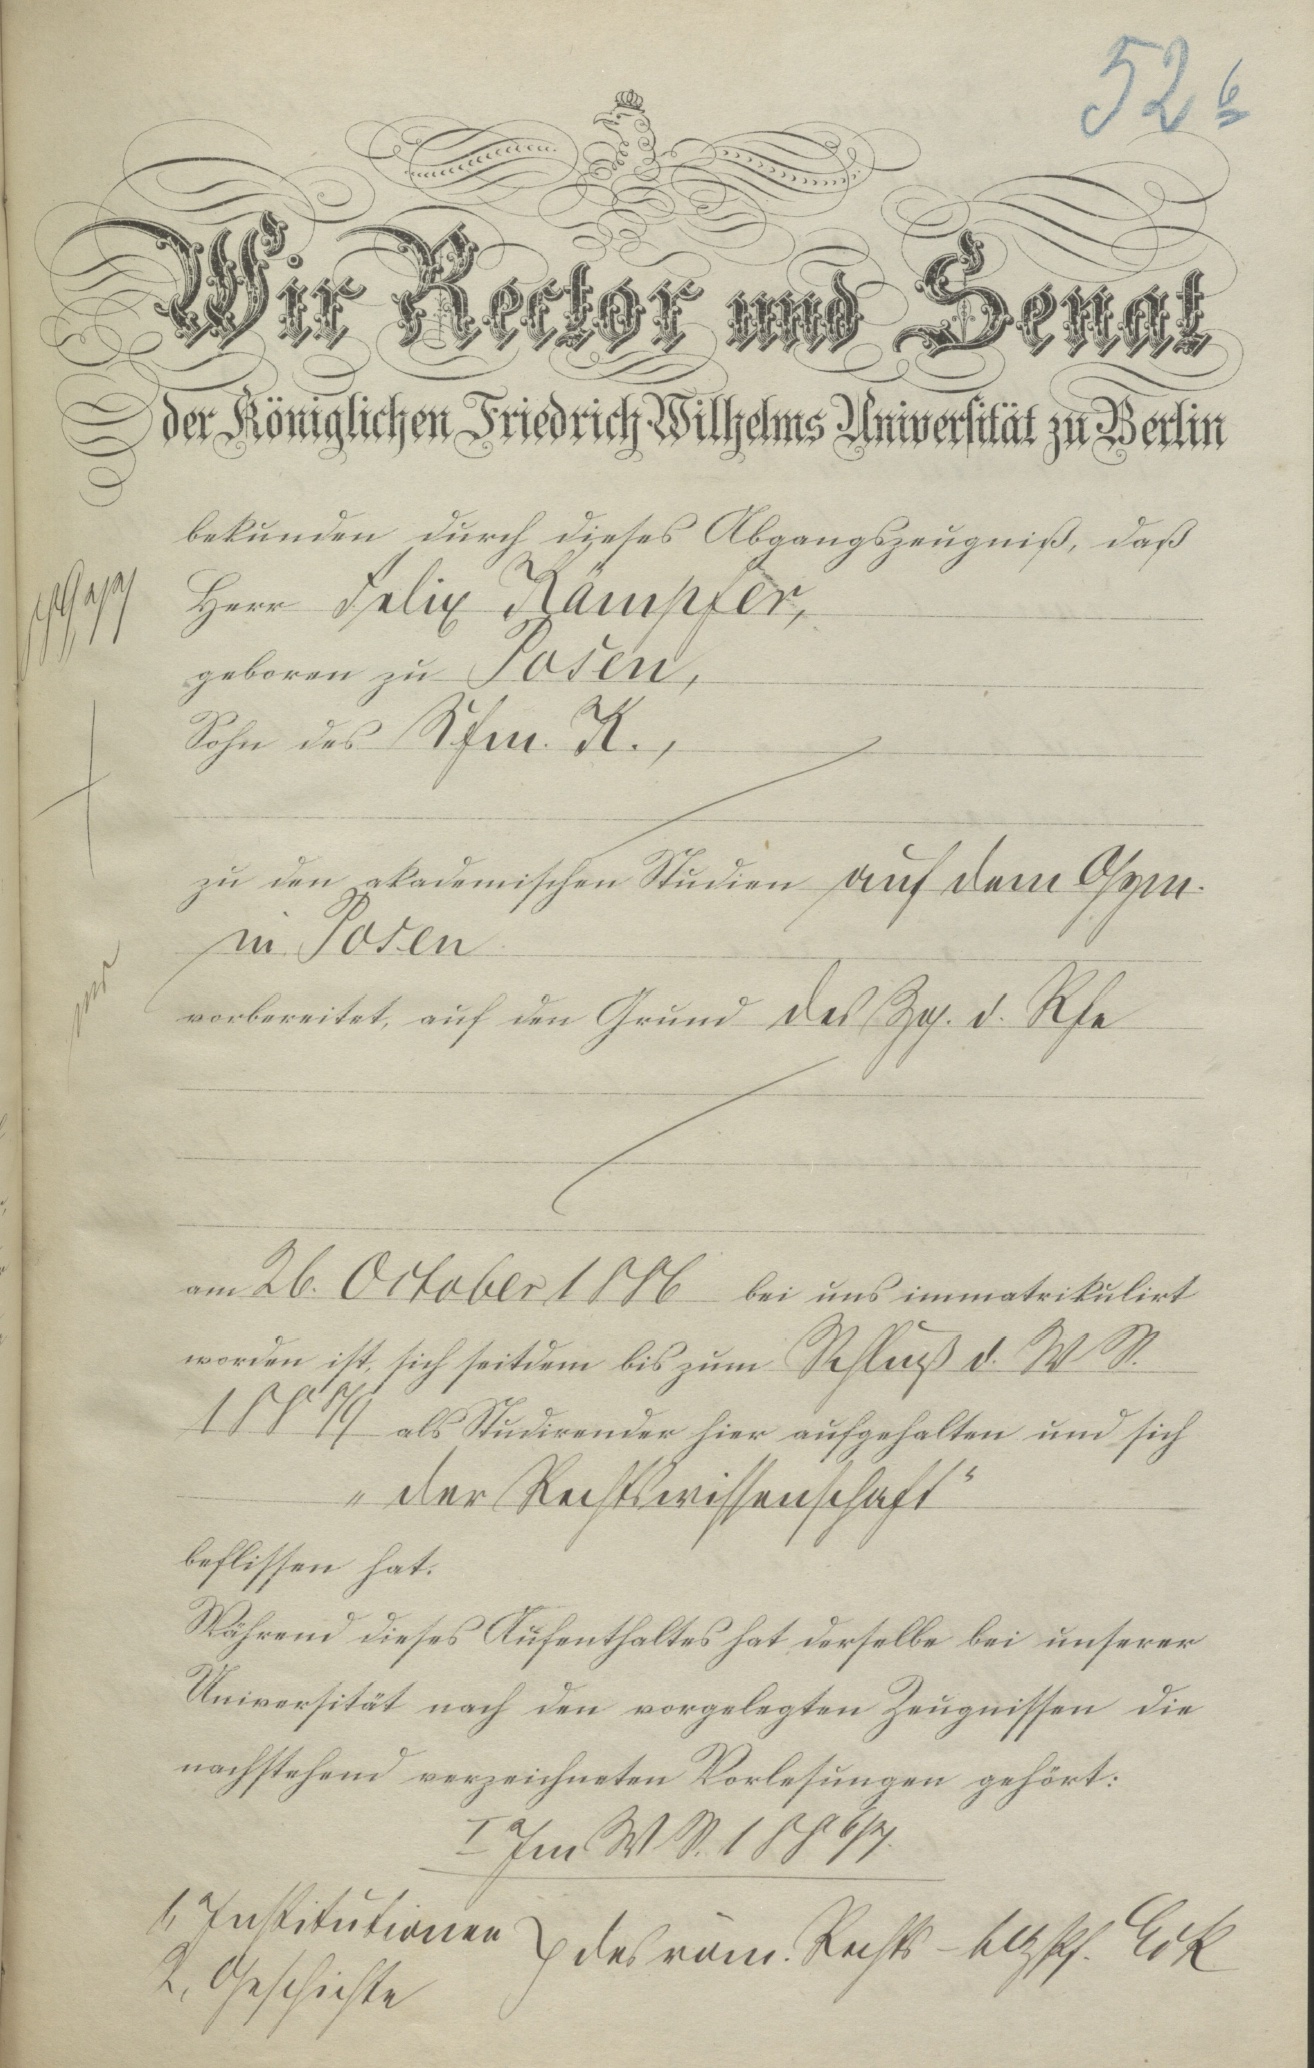 52
6
Wir Rector und Senat
der Königlichen Friedrich-Wilhelms Universität zu Berlin
bekunden durch dieses Abgangszeugniß, daß
Herr Felix Kämpfer,
geboren zu Posen,
Sohn des Kfm. K.,
zu den akademischen Studien auf dem Gym.
in Posen
vorbereitet, auf den Grund des Zg. d. Rfe
am 26. October 1886 bei uns immatrikulirt
worden ist, sich seitdem bis zum Schluß d. W S.
188 8/9 als Studirender hier aufgehalten und sich
„der Rechtswissenschaft“
beflissen hat.
Während dieses Aufenthaltes hat derselbe bei unserer
Universität nach den vorgelegten Zeugnissen die
nachstehend verzeichneten Vorlesungen gehört:
I Im W S. 188 6/7.
1, Institutionen } des röm. Rechts - Eck
2, Geschichte